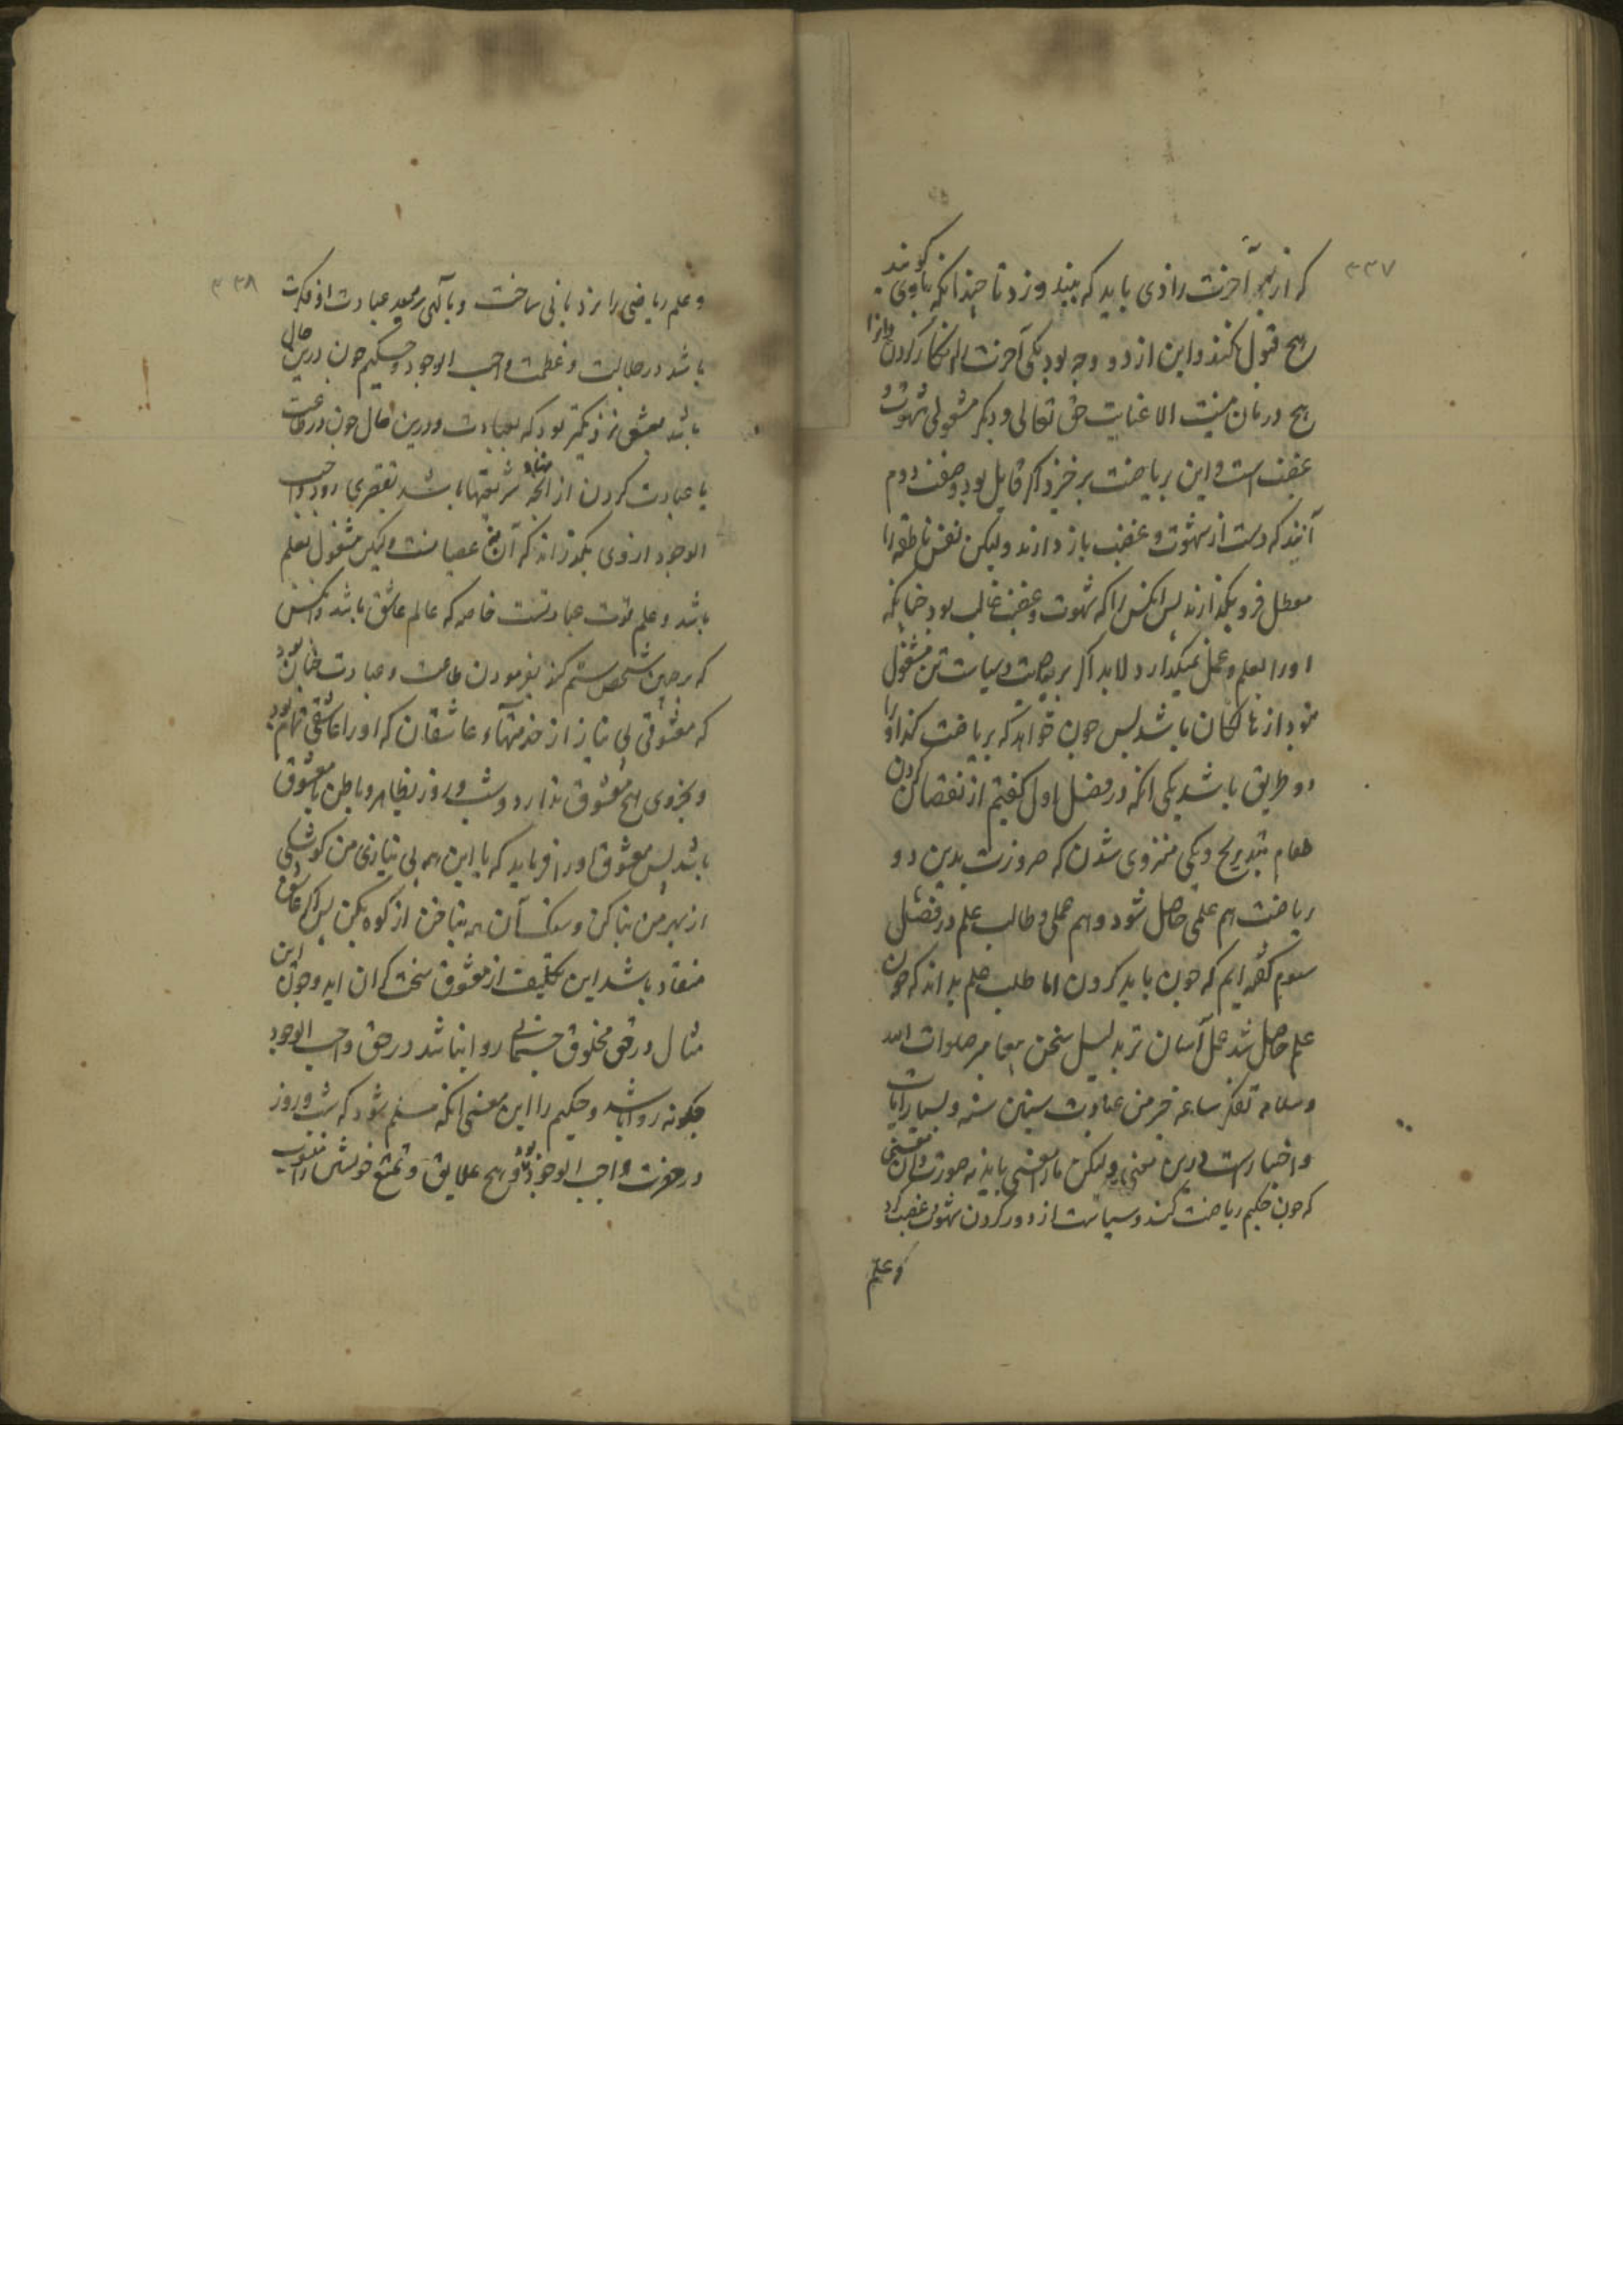 ۳۳۷
که از بهر آخرت زادی باید که بیندوزد تا چندانکه باوی گویند
هیچ قبول نکند و این از دو وجه بود یکی آخرت را انکار کردن
هیچ درمان نیست الا عنایت حق تعالی و دیگر مشغولی شهوت و
غضب است و این بریاضت برخیزد اگر قابل بود و صنف دوم
آنند که دست از شهوت و غضب باز دارند ولیکن نفس ناطقه را
معطل فرو بگذارند پس آنکس را که شهوت و غضب غالب بود چنانکه
اورا بعلم و عمل نمیگذارد لابد اگر بریاضت و سیاست تن مشغول
نبود از هالکان باشد پس چون خواهد که ریاضت کند او را
دو طریق باشد یکی آنکه در فصل اول گفتیم از نقصان کردن
طعام بتدریج و یکی منزوی شدن که ضرورت بدین دو
ریاضت هم علمی حاصل شود و هم عملی و طالب علم در فصل
سوم گفته ایم که چون باید کردن اما طلب علم بداند که چون
علم حاصل شد عمل آسان تر بدلیل سخن پیغامبر صلوات الله
و سلامه تفکر ساعه خیر من عبادت سبعین سنه و بسیار آیات
و اخبارست درین معنی ولیکن مارا معنی باید نه صورت و آن معنی
که چون حکیم ریاضت کند و سیاست از دور کردن شهوت و غضب کرد
و علم
۳۳۸
و علم ریاضی را نردبانی ساخت و بآلهی رسید عبادت او فکرت
باشد در جلالت و عظمت واجب الوجود و حکیم چون درین حال
باشد بعشق نزدیکتر بود که بعبادت و درین حال چون در طاعت
یا عبادت کردن از آنچه نهاد شریعتها باشد تقصیری رود واجب
الوجود از وی بگذراند که آن نه عصیانست ولیکن مشغول بعلم
باشد و علم قوت عبادتست خاصه که عالم عاشق باشد و آنکس
که بر چنین شخص ستم کند بفرمودن طاعت و عبادت چنان بود
که معشوقی بی نیاز از خدمتهاء عاشقان که او را عاشقی تمام بود
و بجز وی هیچ معشوق ندارد و شب و روز بظاهر و باطن با معشوق
باشد پس معشوق او را فرماید که با این همه بی نیازی من کوشکی
از بهر من بنا کن و سنگ آن همه بناخن از کوه بکن پس اگر عاشق
منقاد باشد این تکلیف از معشوق سخت گران آید و چون این
مثال در حق مخلوق جسمانی روا نباشد در حق واجب الوجود
چگونه روا باشد و حکیم را این معنی آنگه مسلم شود که شب و روز
در حضرت واجب الوجود بود و هیچ علایق و تمتع خویش را